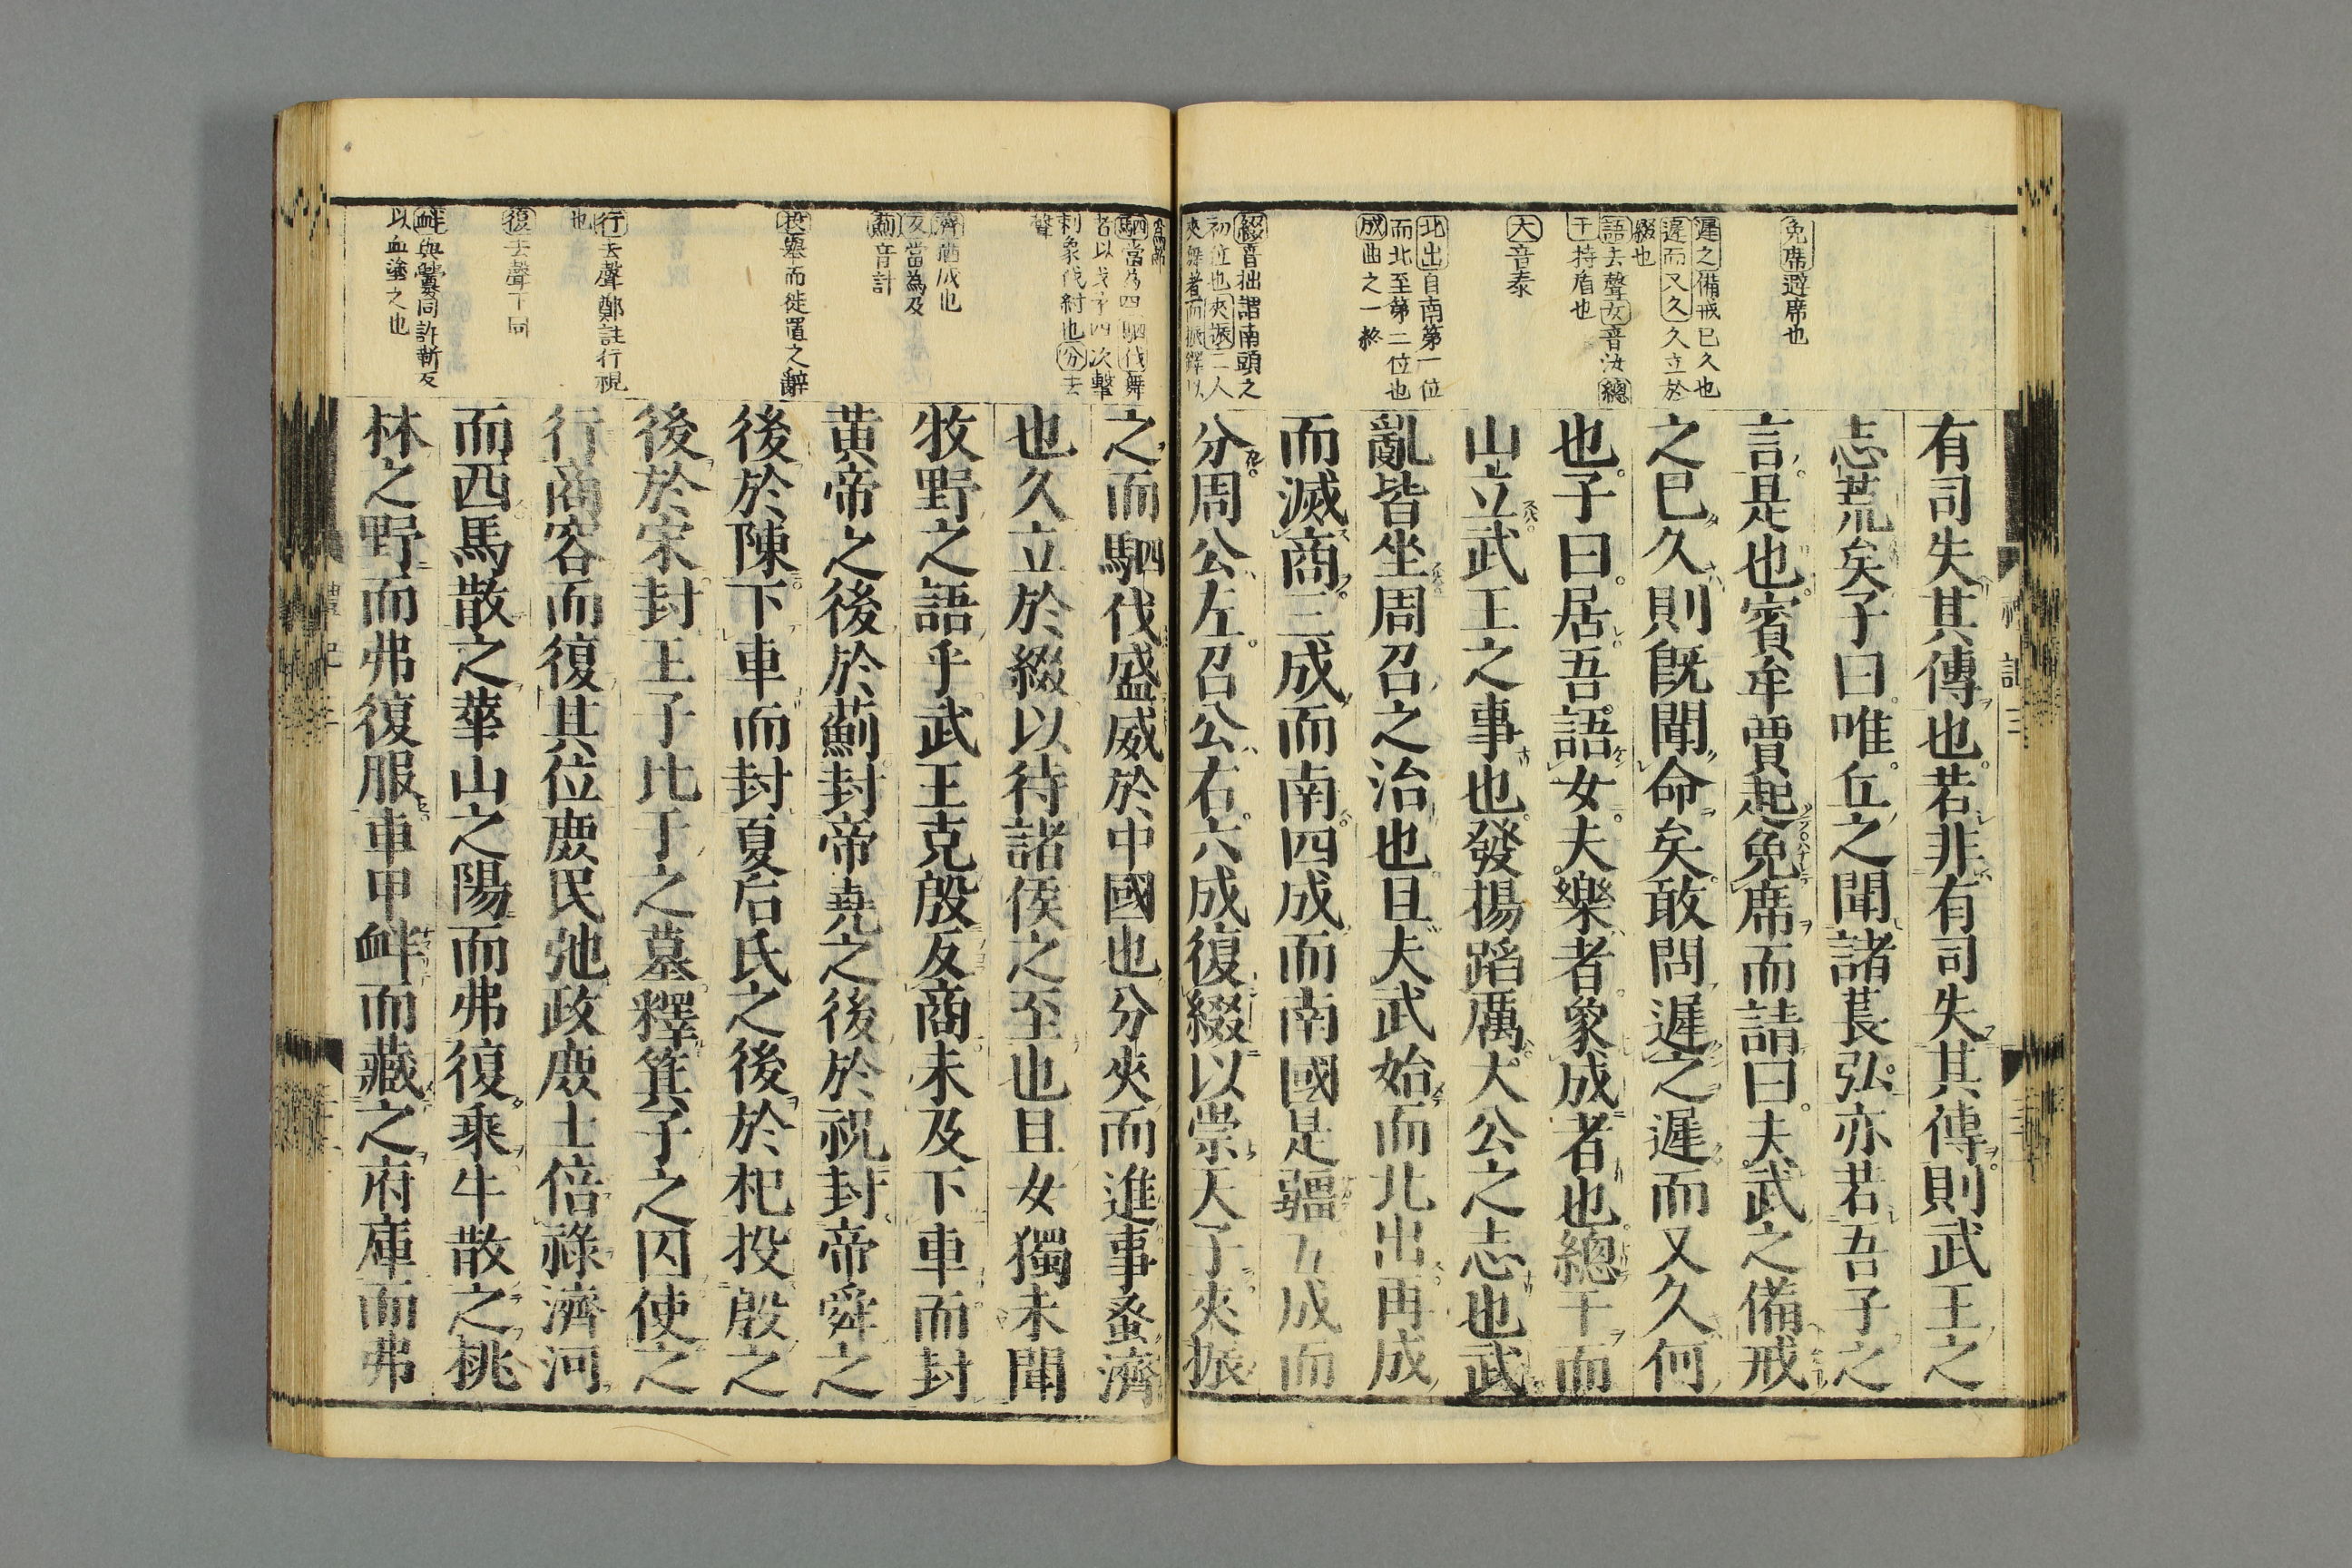 免席避席也
遲之備戒已久也
遲而又久久立於
綴也
語去聲女音汝總
干持盾也
大音泰
北出自南第一位
而北至第二位也
成曲之一終
綴音拙謂南頭之
初位也夾振二人
夾舞者而振鐸以
有司失其傳也若非有司失其傳則武王之
志荒矣子曰唯丘之聞諸萇弘亦若吾子之
言是也賓牟賈起免席而請曰夫武之備戒
之已久則既聞命矣敢問遲之遲而又久何
也子曰居吾語女夫樂者象成者也總干而
山立武王之事也發揚蹈厲大公之志也武
亂皆坐周召之治也且夫武始而北出再成
而滅商三成而南四成而南國是疆五成而
分周公左召公右六成復綴以崇天子夾振
駟當為四駟伐舞
者以戈矛四次擊
刺象伐紂也分去
聲
濟猶成也
反當為及
薊音計
投舉而徙置之辭
行去聲鄭註行視
也
復去聲下同
衅與釁同許靳反
以血塗之也
之而駟四伐盛威於中國也分夾而進事蚤濟
也久立於綴以待諸侯之至也且女獨未聞
牧野之語乎武王克殷反商未及下車而封
黃帝之後於薊封帝堯之後於祝封帝舜之
後於陳下車而封夏后氏之後於杞投殷之
後於宋封王子比干之墓釋箕子之囚使之
行商容而復其位庶民弛政庶士倍祿濟河
而西馬散之華山之陽而弗復乘牛散之桃
林之野而弗復服車甲衅而藏之府庫而弗